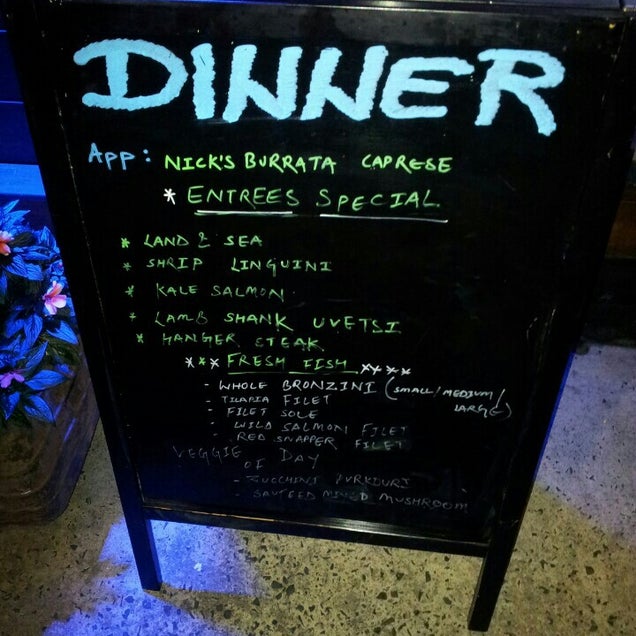 DINNER
App: NICK'S BURRATA CAPRESE
* ENTREES SPECIAL
* LAND & SEA
* SHRIP LINGUINI
* KALE SALMON
* LAMB SHANK UVETSI
* HANGER STEAK
*** FRESH FISH ****
- WHOLE BRONZINI (SMALL/MEDIUM/
LARGE)
- TILAPIA FILET
- FILET SOLE
- WILD SALMON FILET
- RED SNAPPER FILET
VEGGIE OF DAY
- ZUCCHINI
- SAUTEED MIXED MUSHROOM